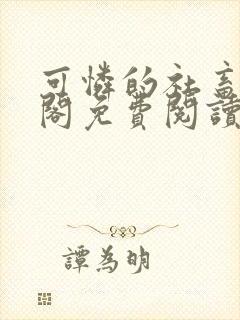 可憐的社畜
閣免費閱讀
譚為明